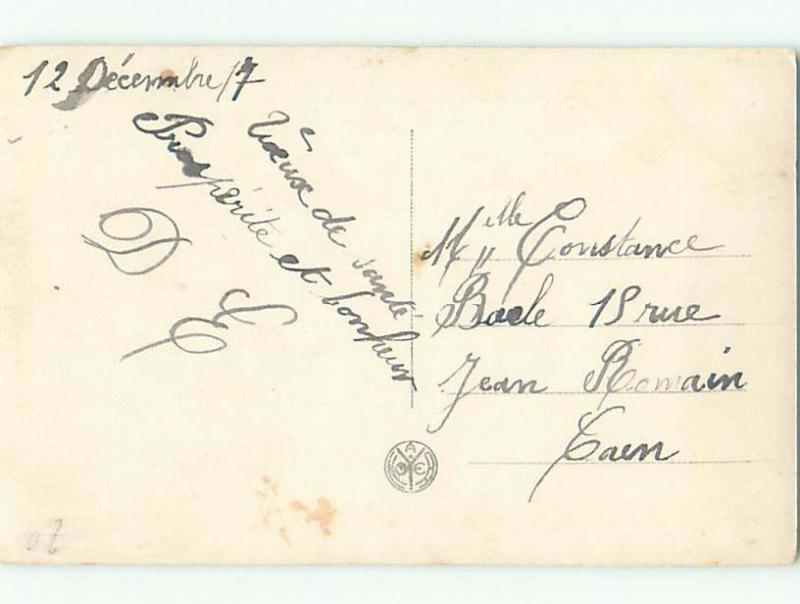 12 Décembre 17
Vœux de santé
Prospérité et bonheur
D E
Melle Constance
Baele 18 rue
Jean Romain
Caen